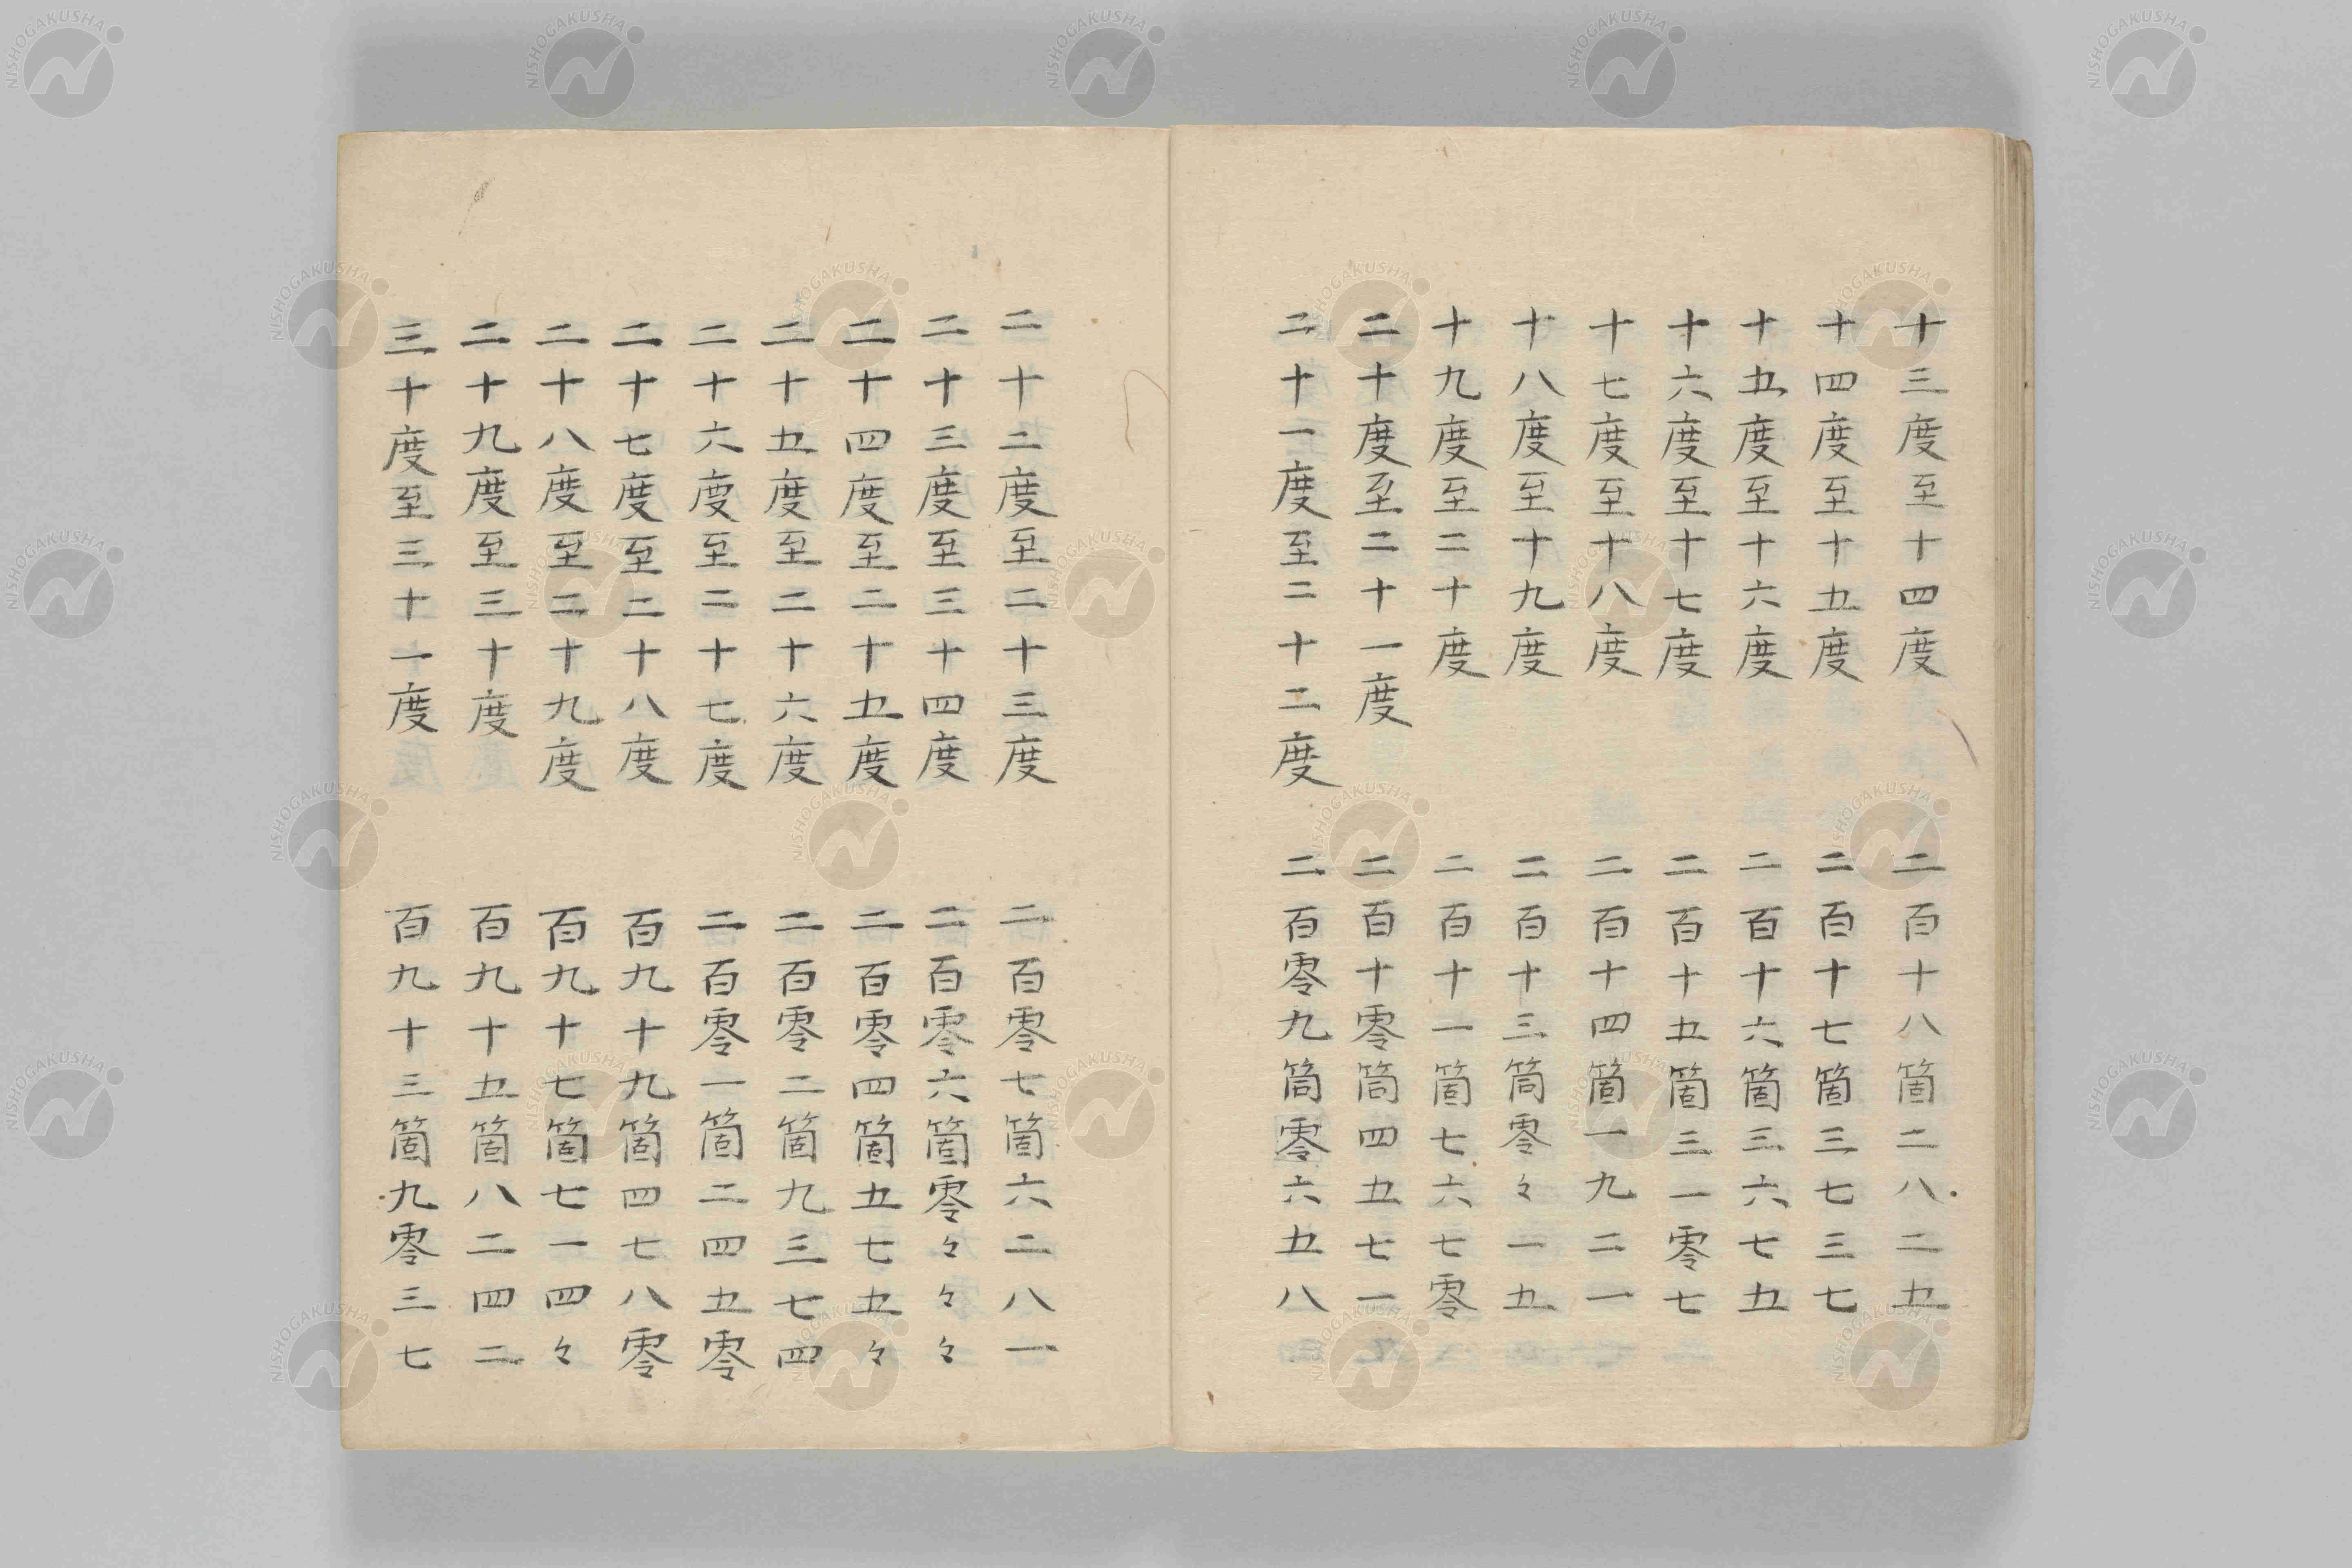 十三度至十四度 二百十八箇二八二五
十四度至十五度 二百十七箇三七三七
十五度至十六度 二百十六箇三六七五
十六度至十七度 二百十五箇三一零七
十七度至十八度 二百十四箇一九二一
十八度至十九度 二百十三箇零々一九
十九度至二十度 二百十一箇七六七零
二十度至二十一度 二百十零箇四五七一
二十一度至二十二度 二百零九箇零六五八
二十二度至二十三度 二百零七箇六二八一
二十三度至三十四度 二百零六箇零々々々
二十四度至二十五度 二百零四箇五七五々
二十五度至二十六度 二百零二箇九三七四
二十六度至二十七度 二百零一箇二四五零
二十七度至二十八度 百九十九箇四七八零
二十八度至二十九度 百九十七箇七一四々
二十九度至三十度 百九十五箇八二四二
三十度至三十一度 百九十三箇九零三七
NISHOGAKUSHA